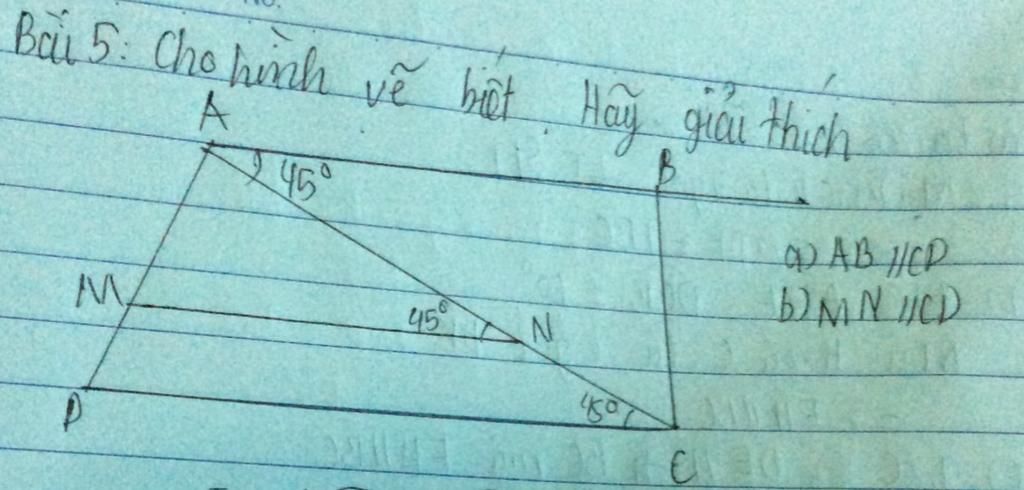 Bài 5: Cho hình vẽ biết. Hãy giải thích
A
45°
B
a) AB // CD
M
45°
N
b) MN // CD
D
45°
C